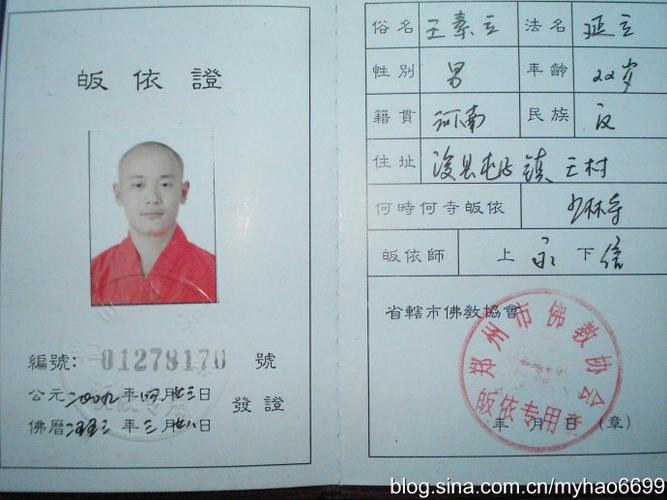 皈依證
編號: 01278170 號
公元二00九年四月廿三日
發證
佛曆二五五三年三月廿八日
俗名 王素立 法名 延立
性別 男 年齡 22岁
籍貫 河南 民族 汉
住址 浚县屯子镇 王村
何時何寺皈依 少林寺
皈依師 上 永 下 信
省轄市佛教協會
郑州市佛教协会
皈依专用章
年 月 日 (章)
blog.sina.com.cn/myhao6699